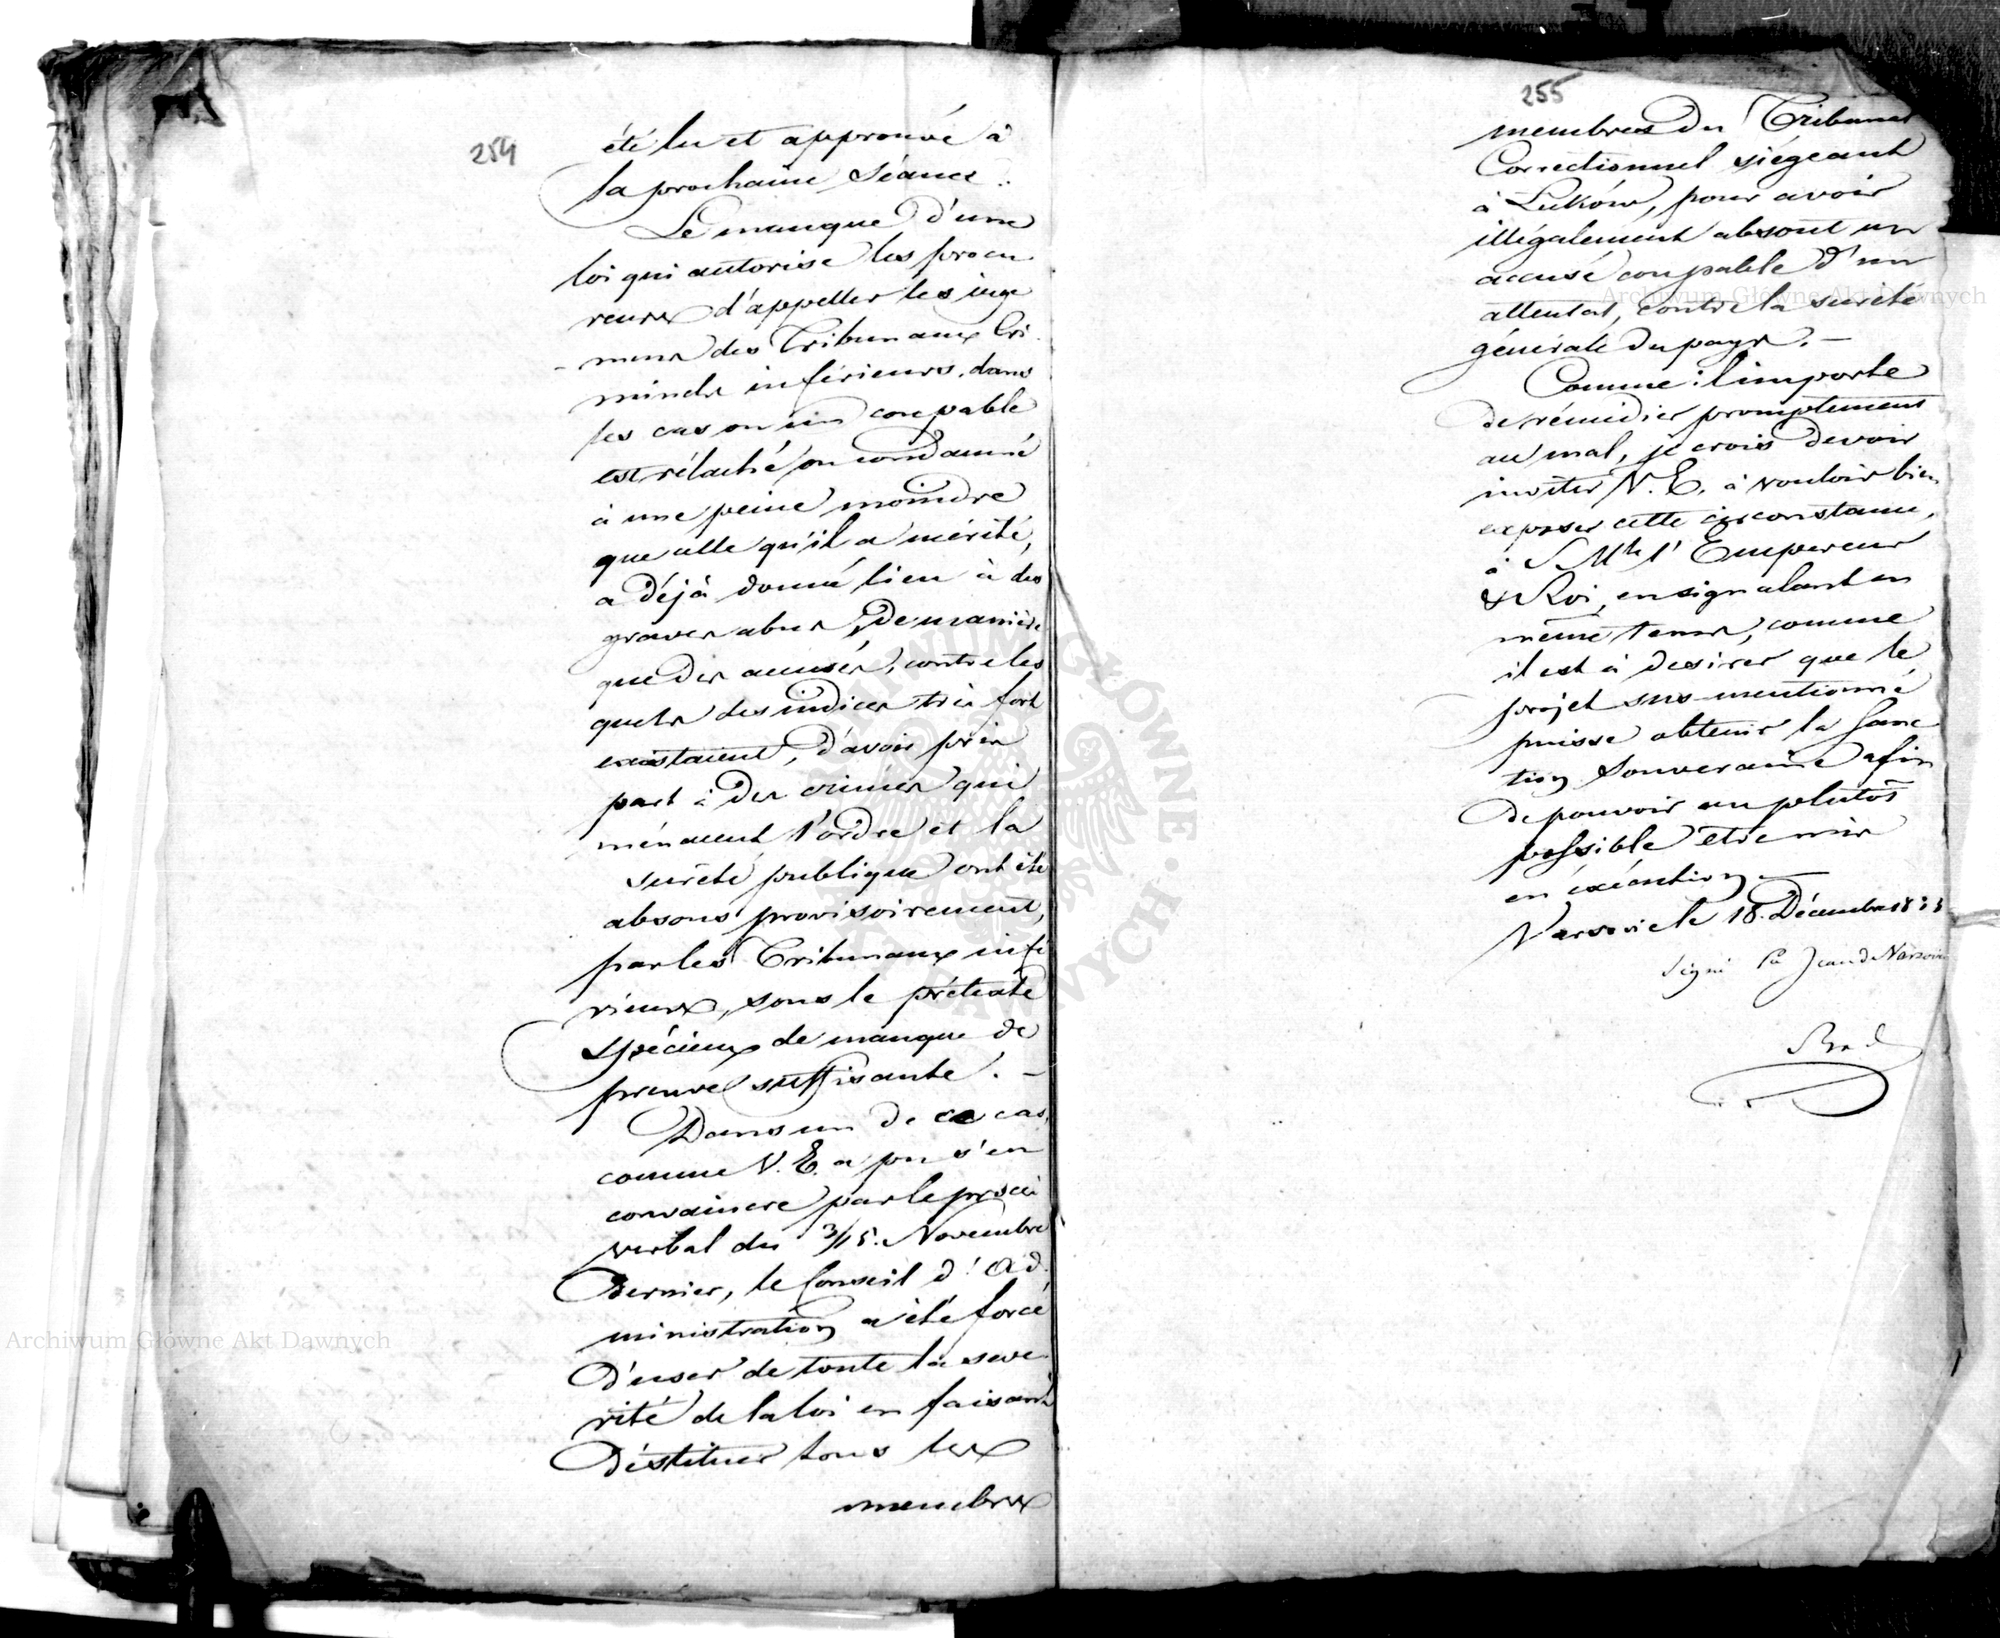 254
été lu et approuvé à
la prochaine Séance.
Le manque d'une
loi qui autorise les procu
reurs d'appeller les juge
mens des Tribunaux Cri
minels inférieurs, dans
les cas où un coupable
est rélaché ou condamné
à une peine moindre
que celle qu'il a mérité,
a déjà donné lieu à des
graves abus, de manière
que des accusés, contre les
quels des indices très fort
existaient, d'avoir pris
part à des crimes qui
ménacent l'ordre et la
sureté publique ont été
absous provisoirement,
par les Tribunaux infé
rieurs, sous le prétexte
spécieux de manque de
preuve suffisante. —
Dans un de ce cas,
comme V. E. a pu s'en
convaincre par le procès
verbal du 3/15. Novembre
dernier, le Conseil d'Ad
ministration a été forcé
d'user de toute la seve
rité de la loi en faisant
déstituer tous les
membres
255
membres du Tribunal
Correctionnel siégeant
à Luków, pour avoir
illégalement absout un
accusé coupable d'un
attentat, contre la sureté
générale du pays. —
Comme il importe
de rémédier promptement
au mal, je crois devoir
inviter V. E. à vouloir bien
exposer cette circonstance,
à S. Mté l'Empereur
& Roi, en signalant en
même tems, comme
il est à desirer que le
projet sus-mentionné
puisse obtenir la Sanc
tion Souveraine afin
de pouvoir au plutôt
possible être mis
en éxécution. —
Varsovie le 18. Décembre
signé Pce Jean de Varsovie